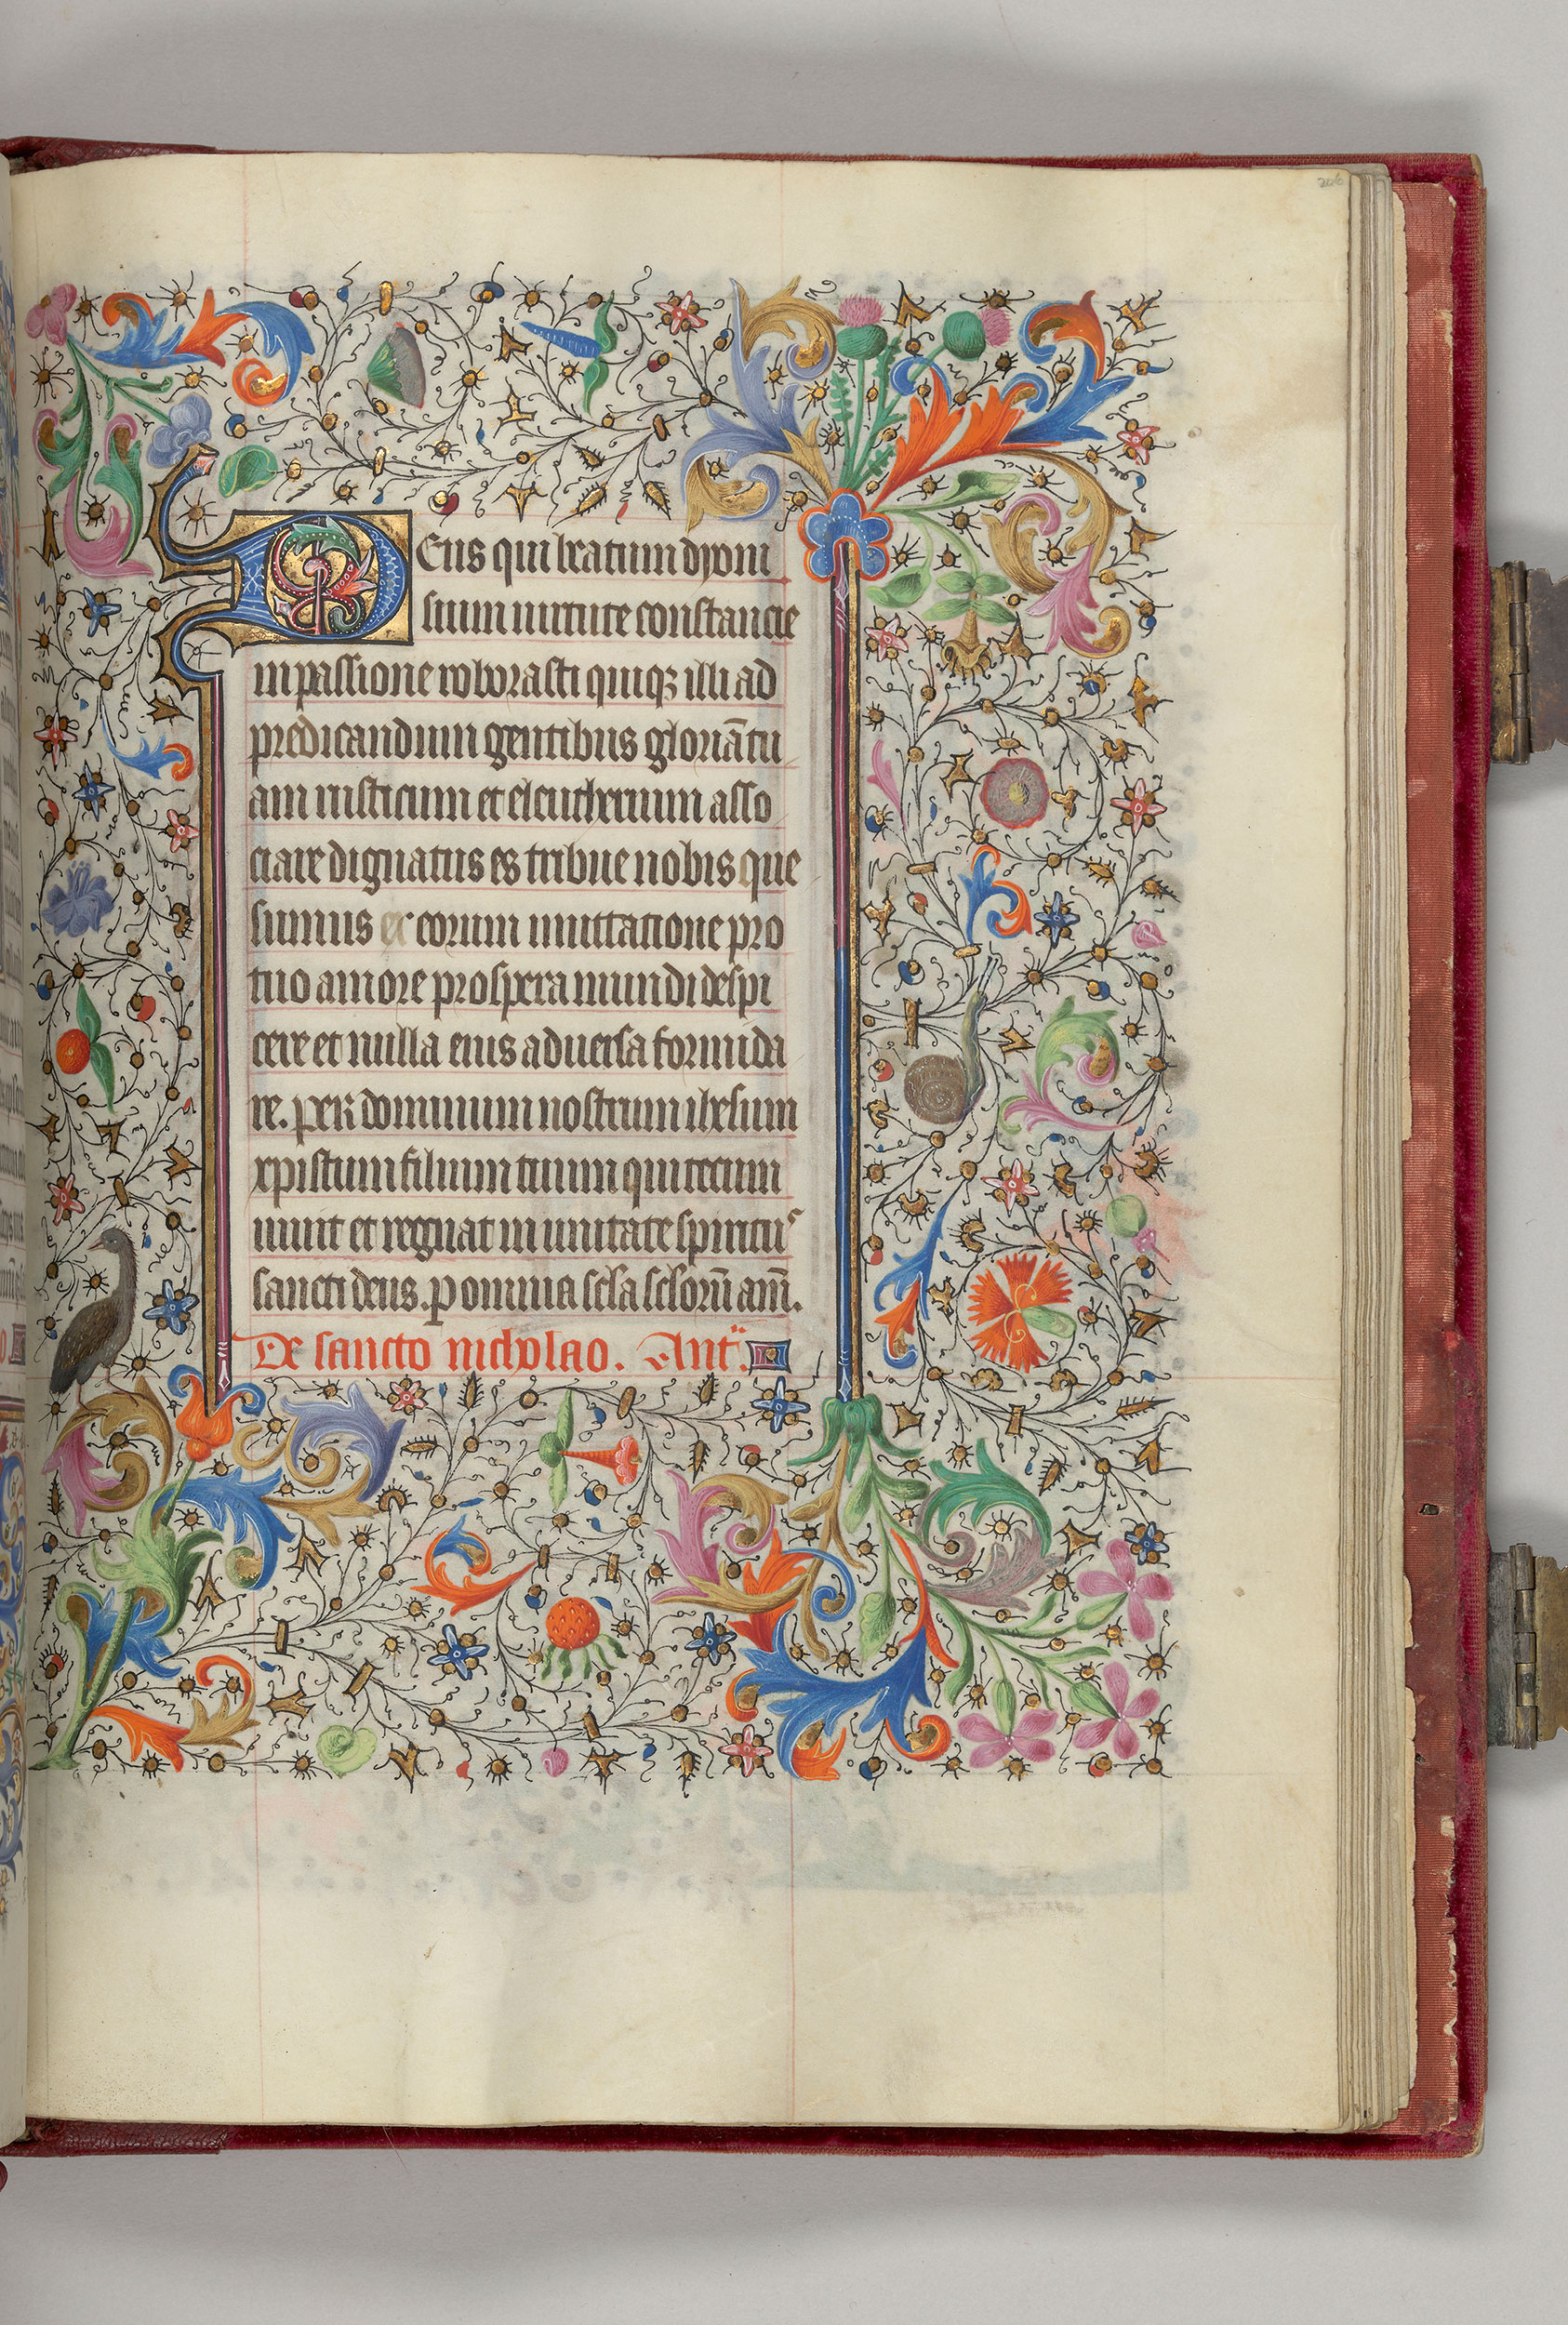 206
Deus qui beatum dyoni
sium uirtute constancie
in passione roborasti quiqz illi ad
predicandum gentibus gloriā tu
am rusticum et eleutherium asso
ciare dignatus es tribue nobis que
sumus ex eorum imittatione pro
tuo amore prospera mundi despi
cere et nulla eius aduersa formida
re. per dominum nostrum ihesum
xpistum filium tuum qui tecum
uiuit et regnat in unitate spiritus
sancti deus. p omnia scla sclorū am̄.
De sancto nicholao. Ant̄.